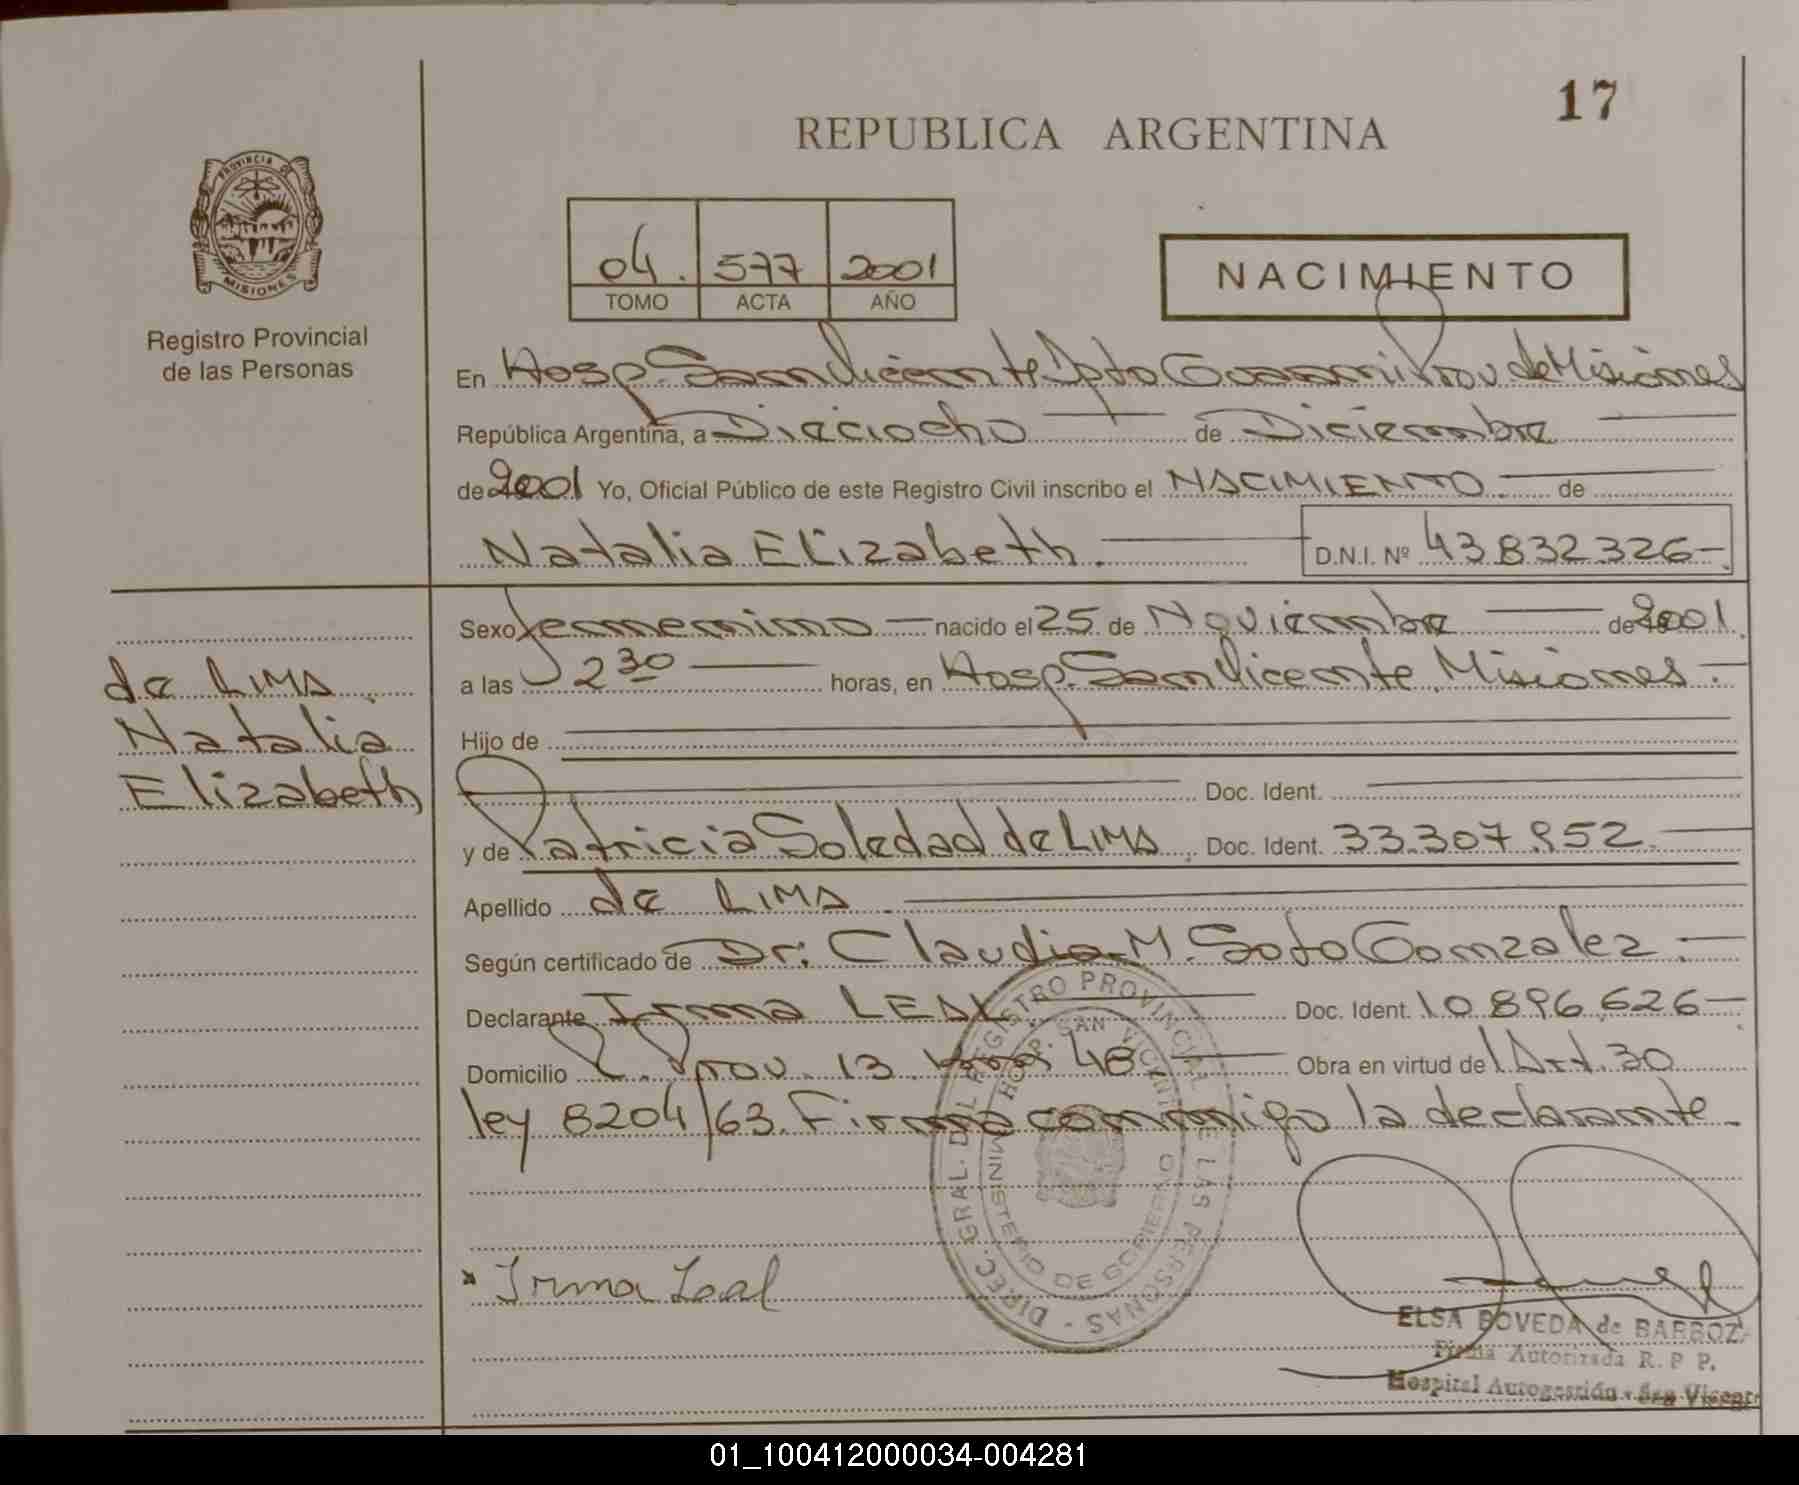 17
REPUBLICA ARGENTINA
PROVINCIA DE
MISIONES
Registro Provincial
de las Personas
04. 577 2001
TOMO ACTA AÑO
NACIMIENTO
En Hosp. San Vicente Dpto Guarani Prov de Misiones
República Argentina, a Dieciocho de Diciembre
de 2001 Yo, Oficial Público de este Registro Civil inscribo el NACIMIENTO. de
Natalia Elizabeth. D.N.I. Nº 43.832.326-
de LIMA.
Natalia
Elizabeth
Sexo femenino - nacido el 25 de Noviembre de 2001.
a las 2 30 horas, en Hosp. San Vicente. Misiones -
Hijo de
Doc. Ident.
y de Patricia Soledad de LIMA. Doc. Ident. 33.307.852.
Apellido de LIMA.
Según certificado de Dr: Claudia M. Soto Gonzalez.
Declarante Irma LEAL Doc. Ident. 10.896.626-
Domicilio R. Prov. 13. 48 Obra en virtud del Art. 30
ley 8204/63. Firma conmigo la declarante-
DIREC. GRAL. DEL REGISTRO PROVINCIAL DE LAS PERSONAS -
HOSP. SAN VICENTE
MINISTERIO DE GOBIERNO
Irma Leal
ELSA BOVEDA de BARBOZA
Firma Autorizada R. P P.
Hospital Autogestión - San Vicente
01_100412000034-004281